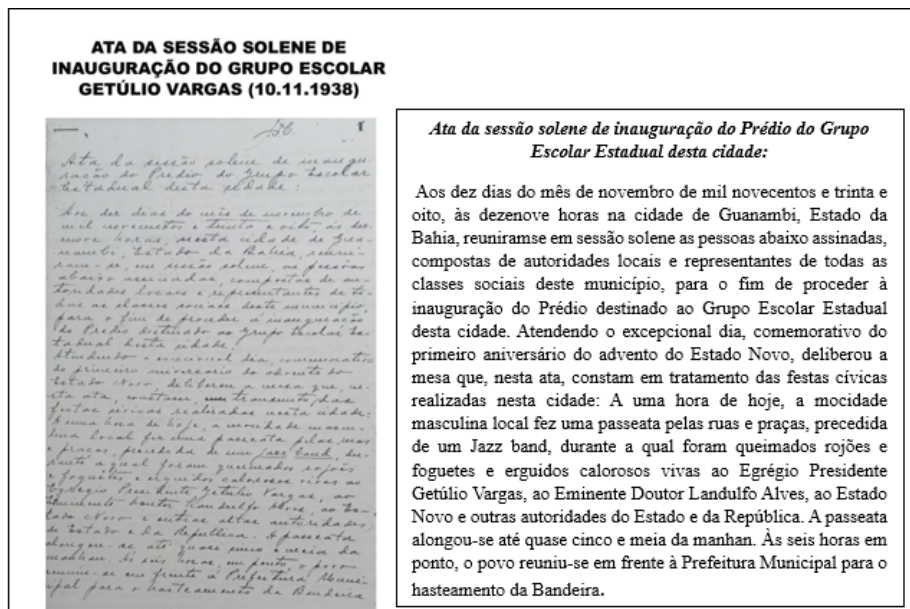 ATA DA SESSÃO SOLENE DE
INAUGURAÇÃO DO GRUPO ESCOLAR
GETÚLIO VARGAS (10.11.1938)
1
Ata da sessão solene de inaugu-
ração do Predio do Grupo Escolar
Estadual desta cidade:
Aos dez dias do mês de novembro de
mil novecentos e trinta e oito, ás de-
zenove horas, nesta cidade de Gua-
nambi, Estado da Bahia, reuni-
ram-se, em sessão solene, as pessoas
abaixo assinadas, compostas de au-
toridades locaes e representantes de to-
das as classes sociaes deste municipio,
para o fim de proceder á inauguração
do Predio destinado ao Grupo Escolar Es-
tadual desta cidade.
Atendendo o excecional dia, comemorativo
do primeiro aniversario do advento do
Estado Novo, deliberou a mesa que, nes-
ta ata, constem, das
festas civicas realizadas nesta cidade:
A uma hora de hoje, a mocidade mascu-
lina local fez uma passeata pelas ruas
e praças, precedida de um Jazz band, du-
rante a qual foram queimados rojões
e foguetes e erguidos calorosos vivas ao
Egregio Presidente Getulio Vargas, ao
Eminente doutor Landulfo Alves, ao Es-
tado Novo e outras altas autoridades
do Estado e da Republica. A passeata
alongou-se até quasi cinco e meia da
manhan. Ás seis horas, em ponto, o povo
reuniu-se em frente á Prefeitura Muni-
cipal para o hasteamento da Bandeira
Ata da sessão solene de inauguração do Prédio do Grupo
Escolar Estadual desta cidade:
Aos dez dias do mês de novembro de mil novecentos e trinta e
oito, às dezenove horas na cidade de Guanambi, Estado da
Bahia, reuniramse em sessão solene as pessoas abaixo assinadas,
compostas de autoridades locais e representantes de todas as
classes sociais deste município, para o fim de proceder à
inauguração do Prédio destinado ao Grupo Escolar Estadual
desta cidade. Atendendo o excepcional dia, comemorativo do
primeiro aniversário do advento do Estado Novo, deliberou a
mesa que, nesta ata, constam em tratamento das festas cívicas
realizadas nesta cidade: A uma hora de hoje, a mocidade
masculina local fez uma passeata pelas ruas e praças, precedida
de um Jazz band, durante a qual foram queimados rojões e
foguetes e erguidos calorosos vivas ao Egrégio Presidente
Getúlio Vargas, ao Eminente Doutor Landulfo Alves, ao Estado
Novo e outras autoridades do Estado e da República. A passeata
alongou-se até quase cinco e meia da manhan. Às seis horas em
ponto, o povo reuniu-se em frente à Prefeitura Municipal para o
hasteamento da Bandeira.